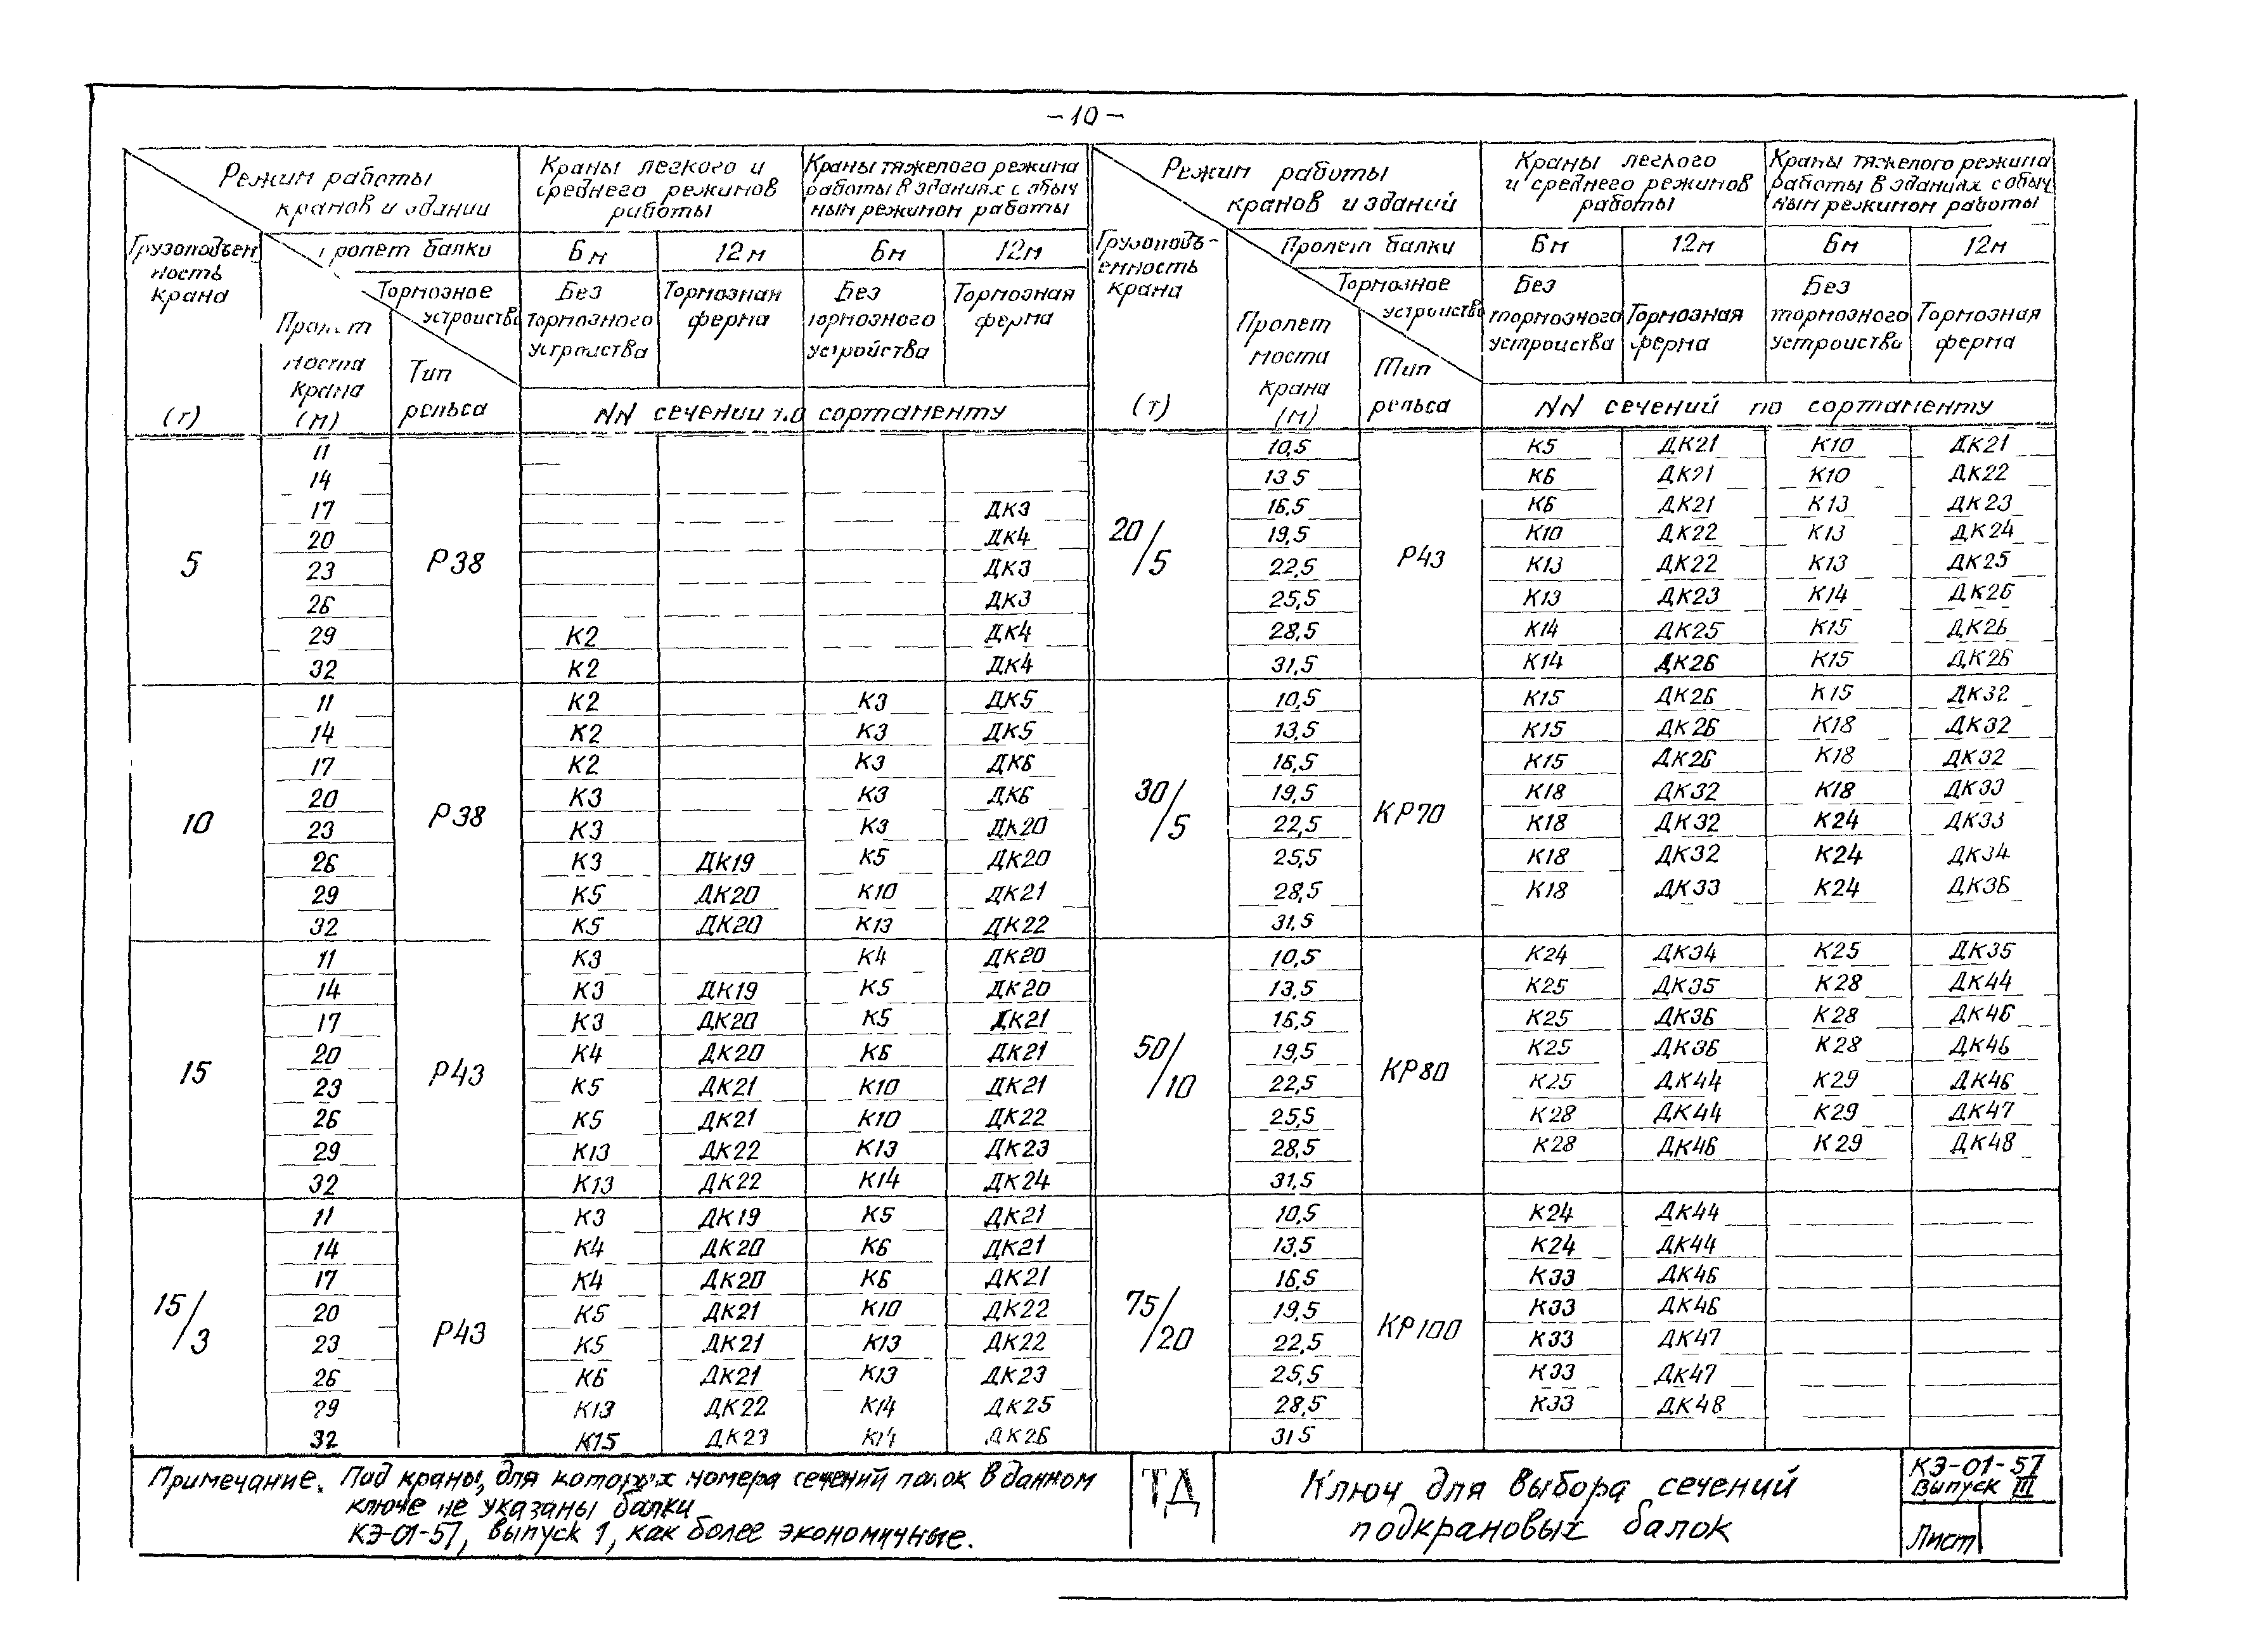 -10-
Режим работы
кранов и здании
Краны легкого и
среднего режимов
работы
Краны тяжелого режима
работы в зданиях с обыч
ным режимом работы
Грузоподъем
ность
крана
(т)
Пролет балки
6м 12м 6м 12м
Тормозное
устроиство
Без
тормозного
устроиства
Тормозная
ферма
Без
тормозного
устройства
Тормозная
ферма
Пролет
моста
крана
(м)
Тип
рельса
NN сечении по сортаменту
5 Р38
11
14
17 ДК3
20 ДК4
23 ДК3
26 ДК3
29 К2 ДК4
32 К2 ДК4
10 Р38
11 К2 К3 ДК5
14 К2 К3 ДК5
17 К2 К3 ДК6
20 К3 К3 ДК6
23 К3 К3 ДК20
26 К3 ДК19 К5 ДК20
29 К5 ДК20 К10 ДК21
32 К5 ДК20 К13 ДК22
15 Р43
11 К3 К4 ДК20
14 К3 ДК19 К5 ДК20
17 К3 ДК20 К5 ДК21
20 К4 ДК20 К6 ДК21
23 К5 ДК21 К10 ДК21
26 К5 ДК21 К10 ДК22
29 К13 ДК22 К13 ДК23
32 К13 ДК22 К14 ДК24
15/3 Р43
11 К3 ДК19 К5 ДК21
14 К4 ДК20 К6 ДК21
17 К4 ДК20 К6 ДК21
20 К5 ДК21 К10 ДК22
23 К5 ДК21 К13 ДК22
26 К6 ДК21 К13 ДК23
29 К13 ДК22 К14 ДК25
32 К15 ДК23 К14 ДК26
Режим работы
кранов и зданий
Краны легкого
и среднего режимов
работы
Краны тяжелого режима
работы в зданиях с обыч
ным режимом работы
Грузоподъ-
емность
крана
(т)
Пролет балки
6м 12м 6м 12м
Тормозное
устроиство
Без
тормозного
устроиства
Тормозная
ферма
Без
тормозного
устроиства
Тормозная
ферма
Пролет
моста
крана
(м)
Тип
рельса
NN сечений по сортаменту
20/5 Р43
10,5 К5 ДК21 К10 ДК21
13 5 К6 ДК21 К10 ДК22
16,5 К6 ДК21 К13 ДК23
19,5 К10 ДК22 К13 ДК24
22,5 К13 ДК22 К13 ДК25
25,5 К13 ДК23 К14 ДК26
28,5 К14 ДК25 К15 ДК26
31,5 К14 ДК26 К15 ДК26
30/5 КР70
10,5 К15 ДК26 К15 ДК32
13,5 К15 ДК26 К18 ДК32
16,5 К15 ДК26 К18 ДК32
19,5 К18 ДК32 К18 ДК33
22,5 К18 ДК32 К24 ДК33
25,5 К18 ДК32 К24 ДК34
28,5 К18 ДК33 К24 ДК36
31,5
50/10 КР80
10,5 К24 ДК34 К25 ДК35
13,5 К25 ДК35 К28 ДК44
16,5 К25 ДК36 К28 ДК46
19,5 К25 ДК36 К28 ДК46
22,5 К25 ДК44 К29 ДК46
25,5 К28 ДК44 К29 ДК47
28,5 К28 ДК46 К29 ДК48
31,5
75/20 КР100
10,5 К24 ДК44
13,5 К24 ДК44
16,5 К33 ДК46
19,5 К33 ДК46
22,5 К33 ДК47
25,5 К33 ДК47
28,5 К33 ДК48
31 5
Примечание. Под краны, для которых номера сечений палок в данном
ключе не указаны балки
КЭ-01-57, выпуск 1, как более экономичные.
ТД
Ключ для выбора сечений
подкрановых балок
КЭ-01-57
Выпуск III
Лист